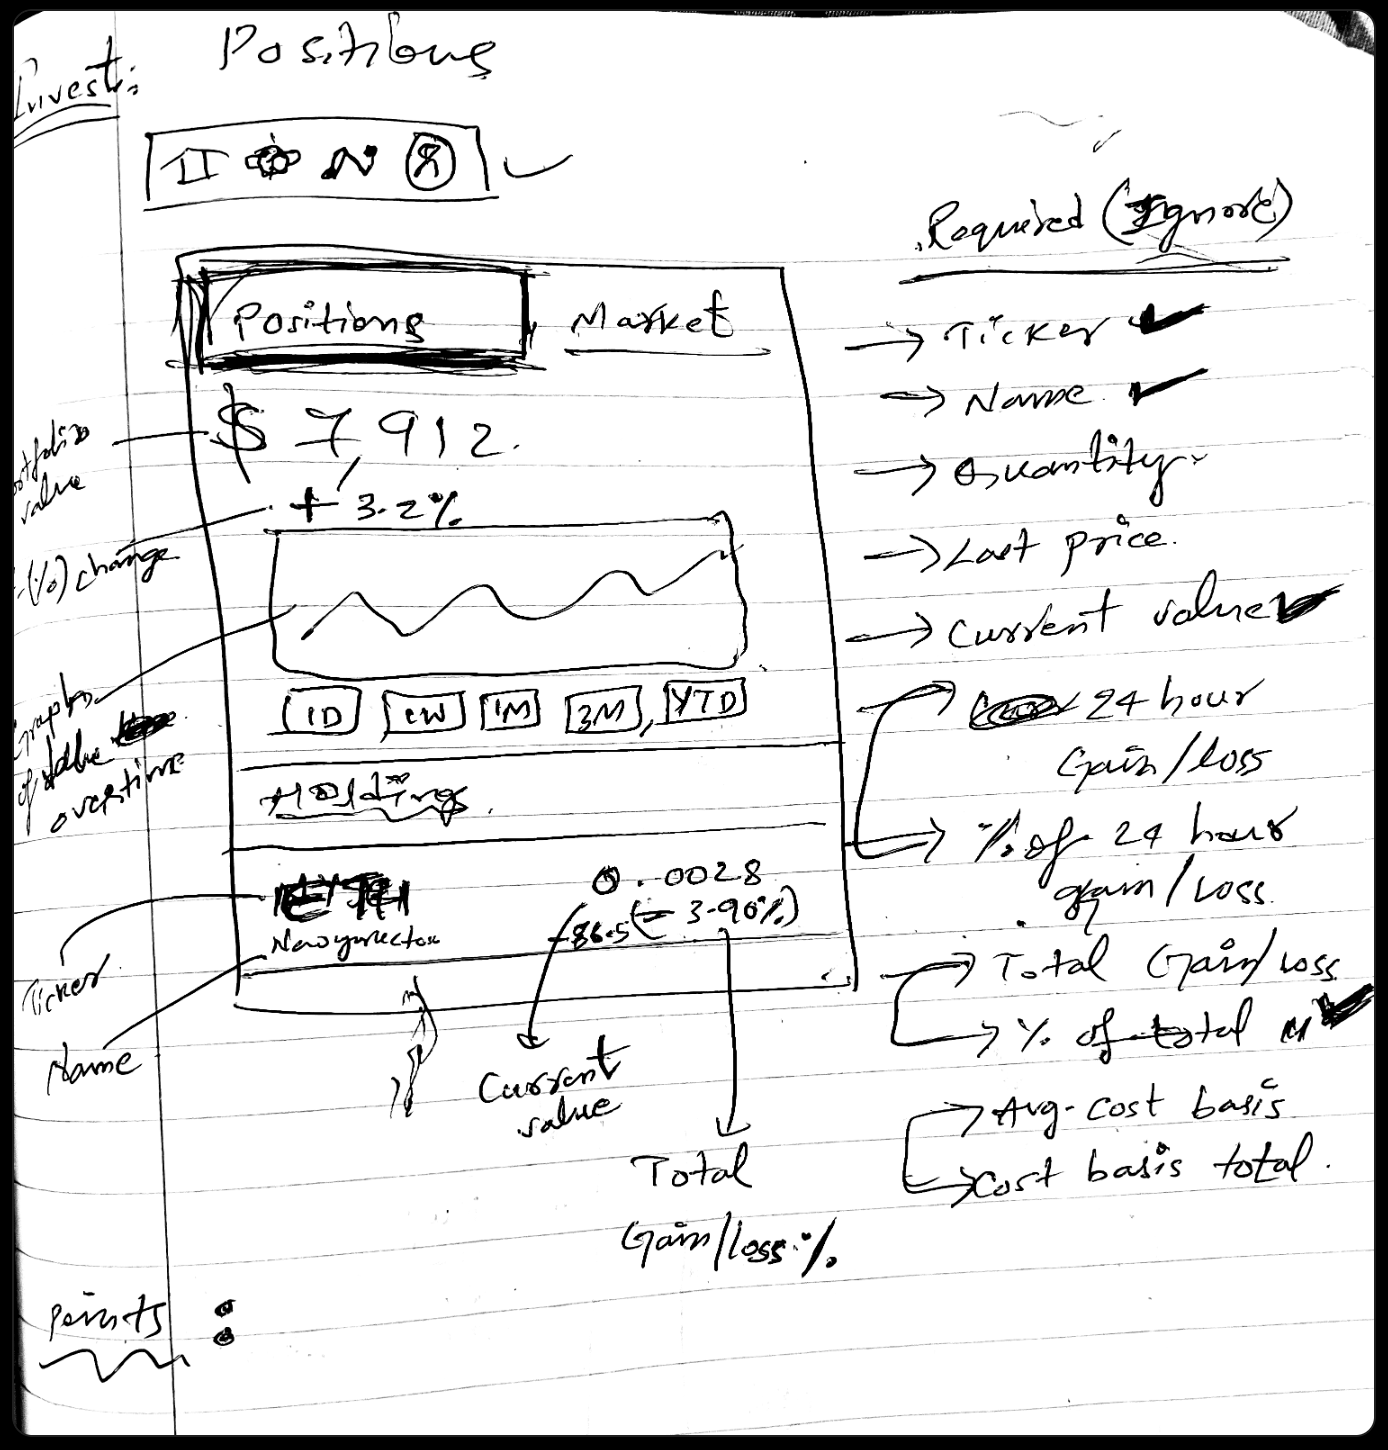 Positions
Invest:
Required (Ignore)
Positions Market
→ Ticker ✔
→ Name ✔
$ 7,912.
→ Quantity
value
+ 3.2%
→ Last price.
(%) change
→ Current value ✔
1D 1W 1M 3M, YTD
→ 24 hour
Gain/loss
Graph
of value
overtime
Holdings.
→ % of 24 hour
gain/loss.
0.0028
-86.5 (- 3.90%)
→ Total Gain/Loss
Ticker
→ % of total ✔
Name
Current
value
→ Avg. cost basis
→ Cost basis total.
Total
Gain/loss %
Points :